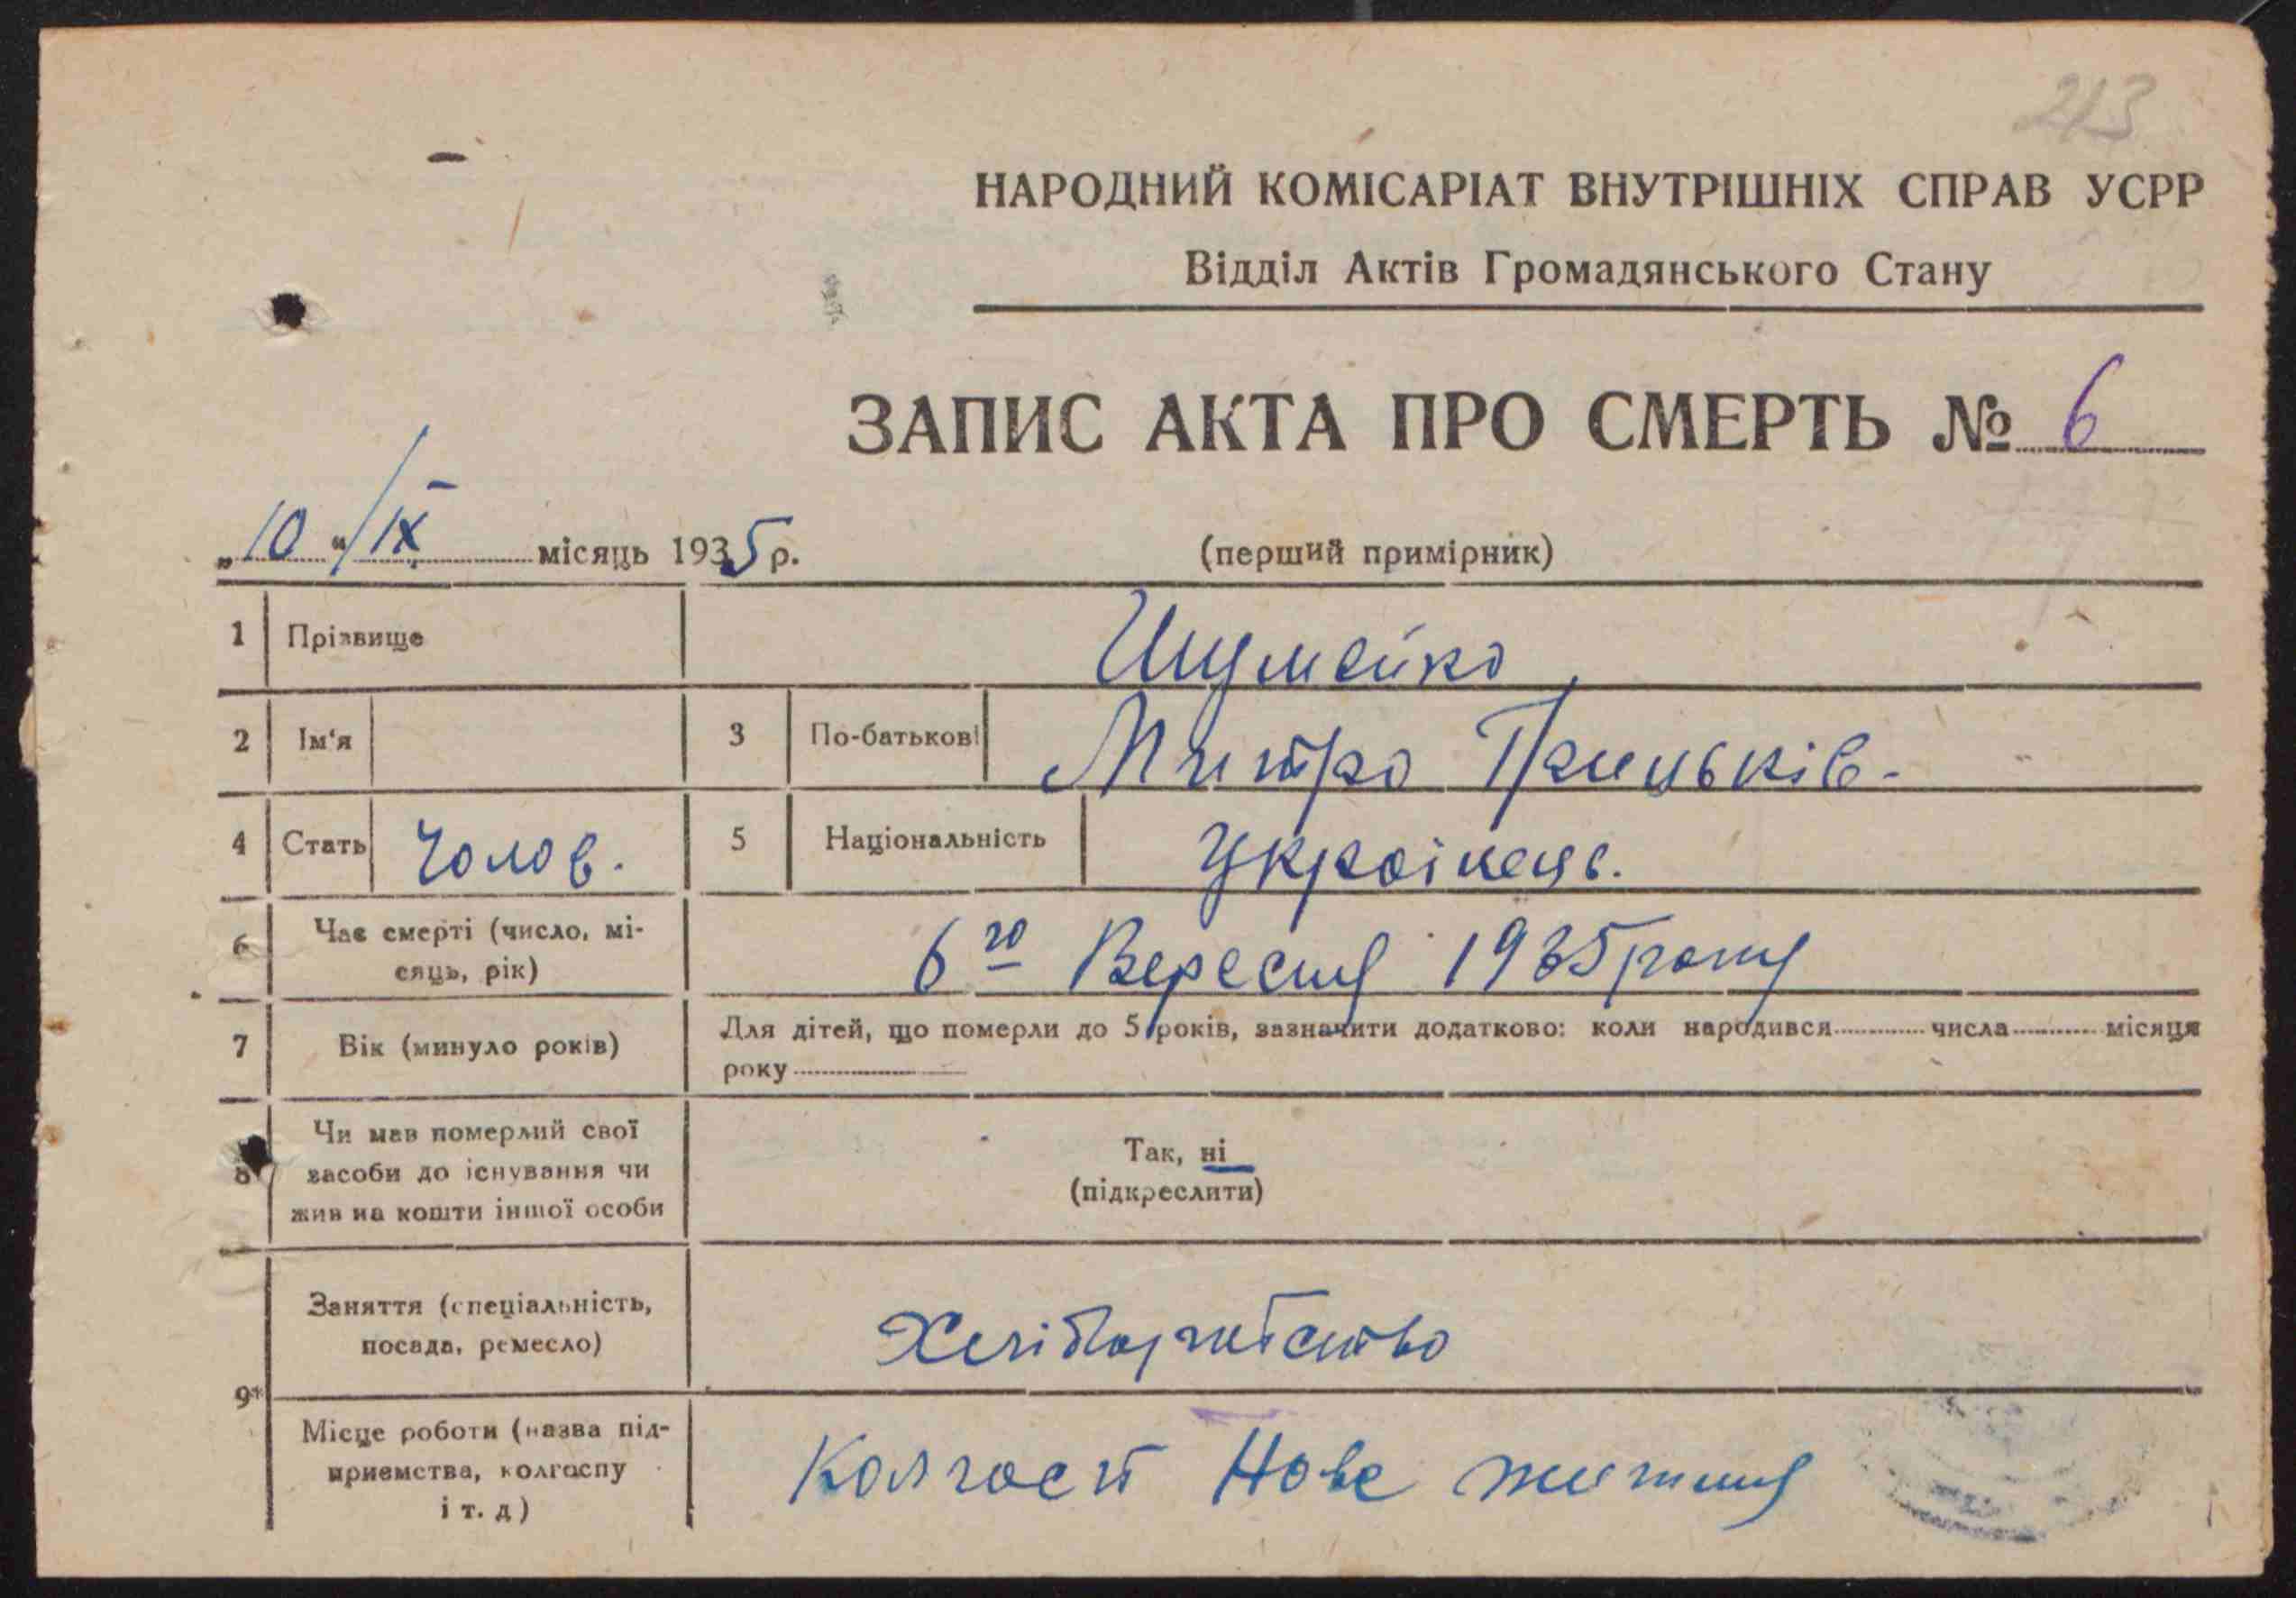 213
НАРОДНИЙ КОМІСАРІАТ ВНУТРІШНІХ СПРАВ УСРР
Відділ Актів Громадянського Стану
ЗАПИС АКТА ПРО СМЕРТЬ № 6
„10“ / IX місяць 1935 р.
(перший примірник)
1 Прізвище Шумейко
2 Ім‘я 3 По-батькові Митро Грицьків.
4 Стать Чолов. 5 Національність Українець.
6 Час смерті (число, мі-
сяць, рік) 6го Вересня 1935 року
7 Вік (минуло років) Для дітей, що померли до 5 років, зазначити додатково: коли народився числа місяця
року
8 Чи мав померлий свої
засоби до існування чи
жив на кошти іншої особи
Так, ні
(підкреслити)
9* Заняття (спеціальність,
посада, ремесло) Хліборобство
Місце роботи (назва під-
приємства, колгоспу
і т. д) Колгосп Нове життя